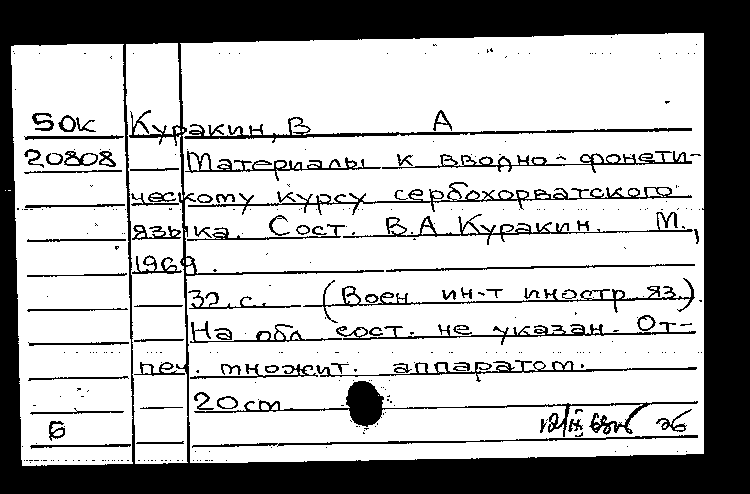 50к Куракин, В А
20808 Материалы к вводно-фонети-
ческому курсу сербохорватского
языка. Сост. В.А. Куракин. М.,
1969.
32 с. (Воен ин-т иностр яз.).
На обл сост. не указан. От-
печ. множит. аппаратом.
20 cm
Б